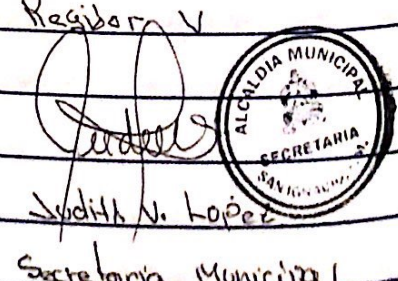 Regidor V
ALCALDIA MUNICIPAL
SECRETARIA
Judith N. Lopez
Secretaria Municipal